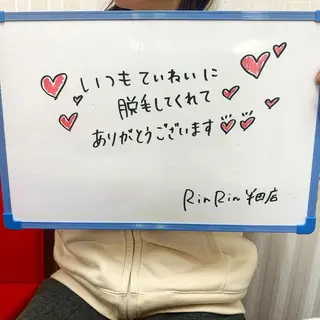 いつもていねいに
脱毛してくれて
ありがとうございます
RinRin半田店